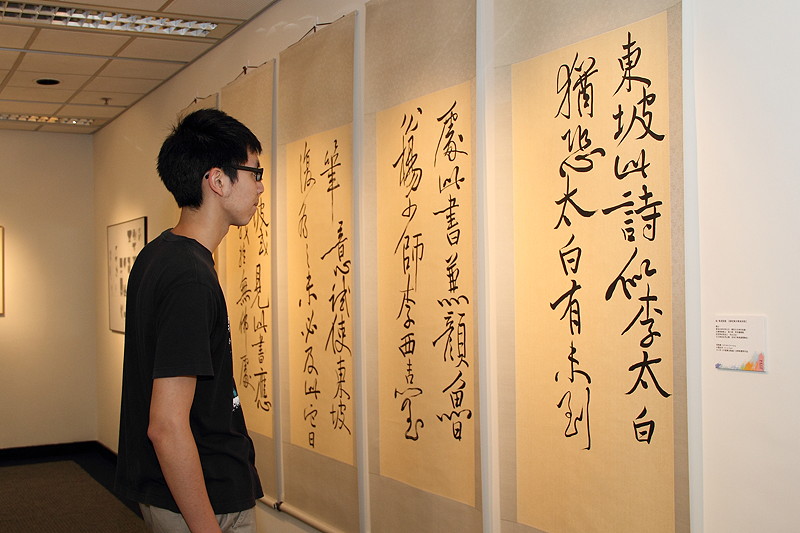 東坡此詩似李太白
猶恐太白有未到
處此書兼顏魯
公楊少師李西臺
筆意試使東坡
復為之未必及此它日
坡或見此書應
我於無佛處